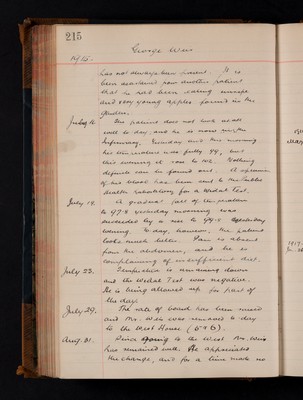 215
George Weir
1915.
has not always been passed. It is
been ascertained from another patient
that he had been eating unripe
and very young apples found in the
garden.
July 11. The patient does not look at all
well to day, and he is now in the
Infirmary. Yesterday and this morning
his temperature was fully 99, but
this evening it rose to 102. Nothing
definite can be found out. A specimen
of his blood has been sent to the Public
Health Laboratory for a Widal Test.
July 14. A gradual fall of temperature
to 97.4 yesterday morning was
succeeded by a rise to 99.2 yesterday
evening. To day, however, the patient
looks much better. Pain is absent
from the abdomen, and he is
complaining of insufficient diet.
July 23. Temperature is running down
and the Widal Test was negative.
He is being allowed up for part of
the day.
July 29. The rate of board has been raised
and Mr. Weir was removed to day
to the West House
Aug. 31. Since going to the West Mr. Weir
has remained well. He appreciated
the change, and for a time made no
1917